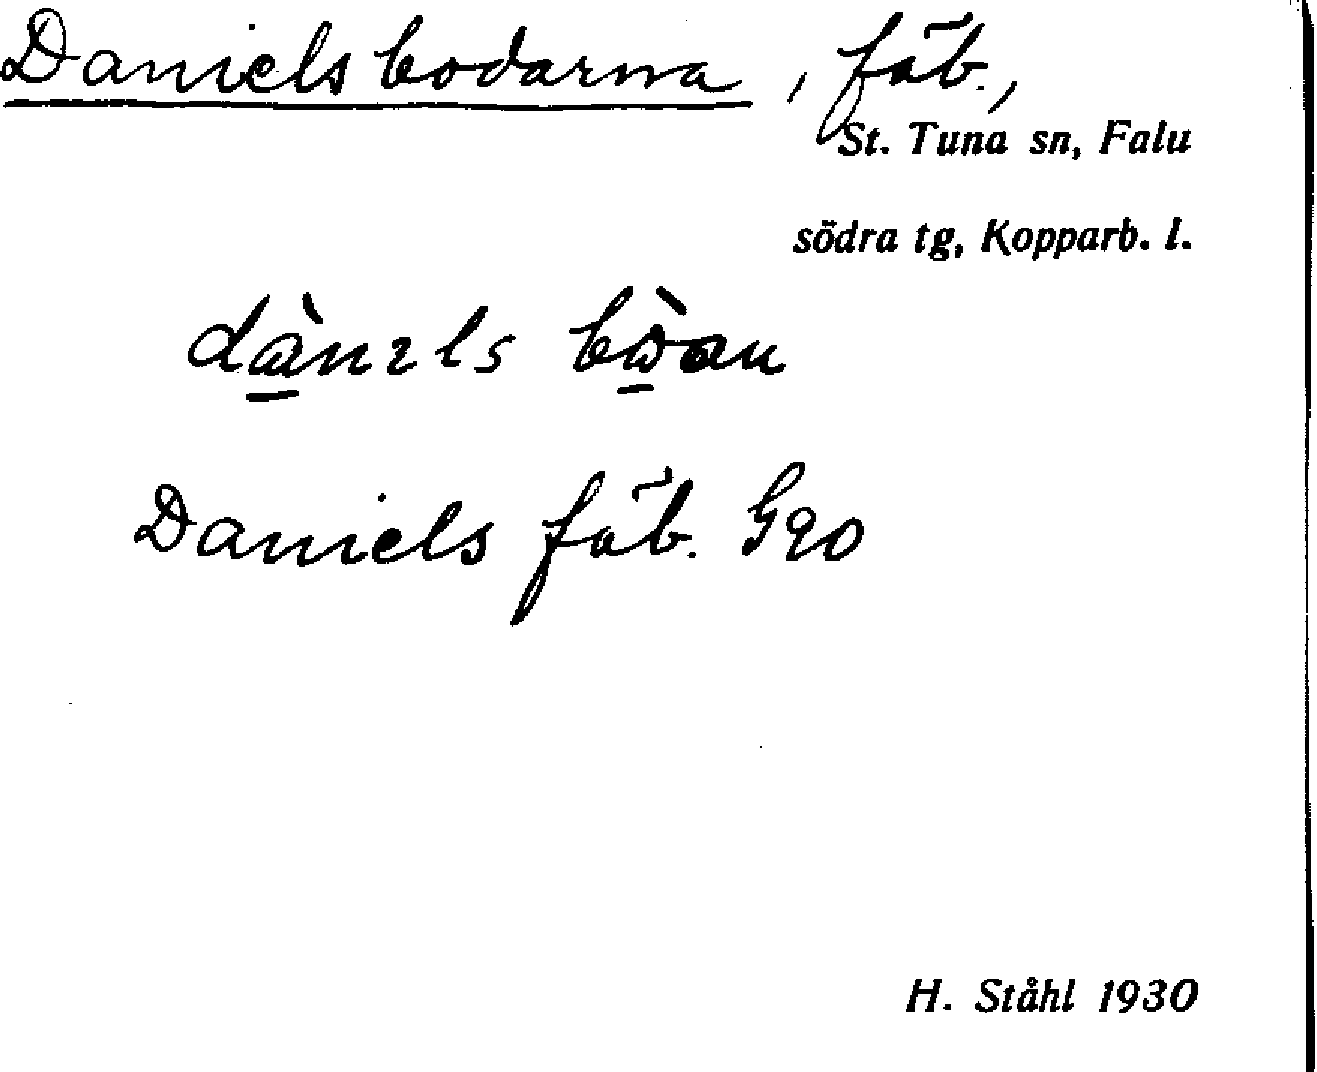 Danielsbodarna, fäb.,
St. Tuna sn, Falu
södra tg, Kopparb. l.
Daniels fäb.
H. Ståhl 1930